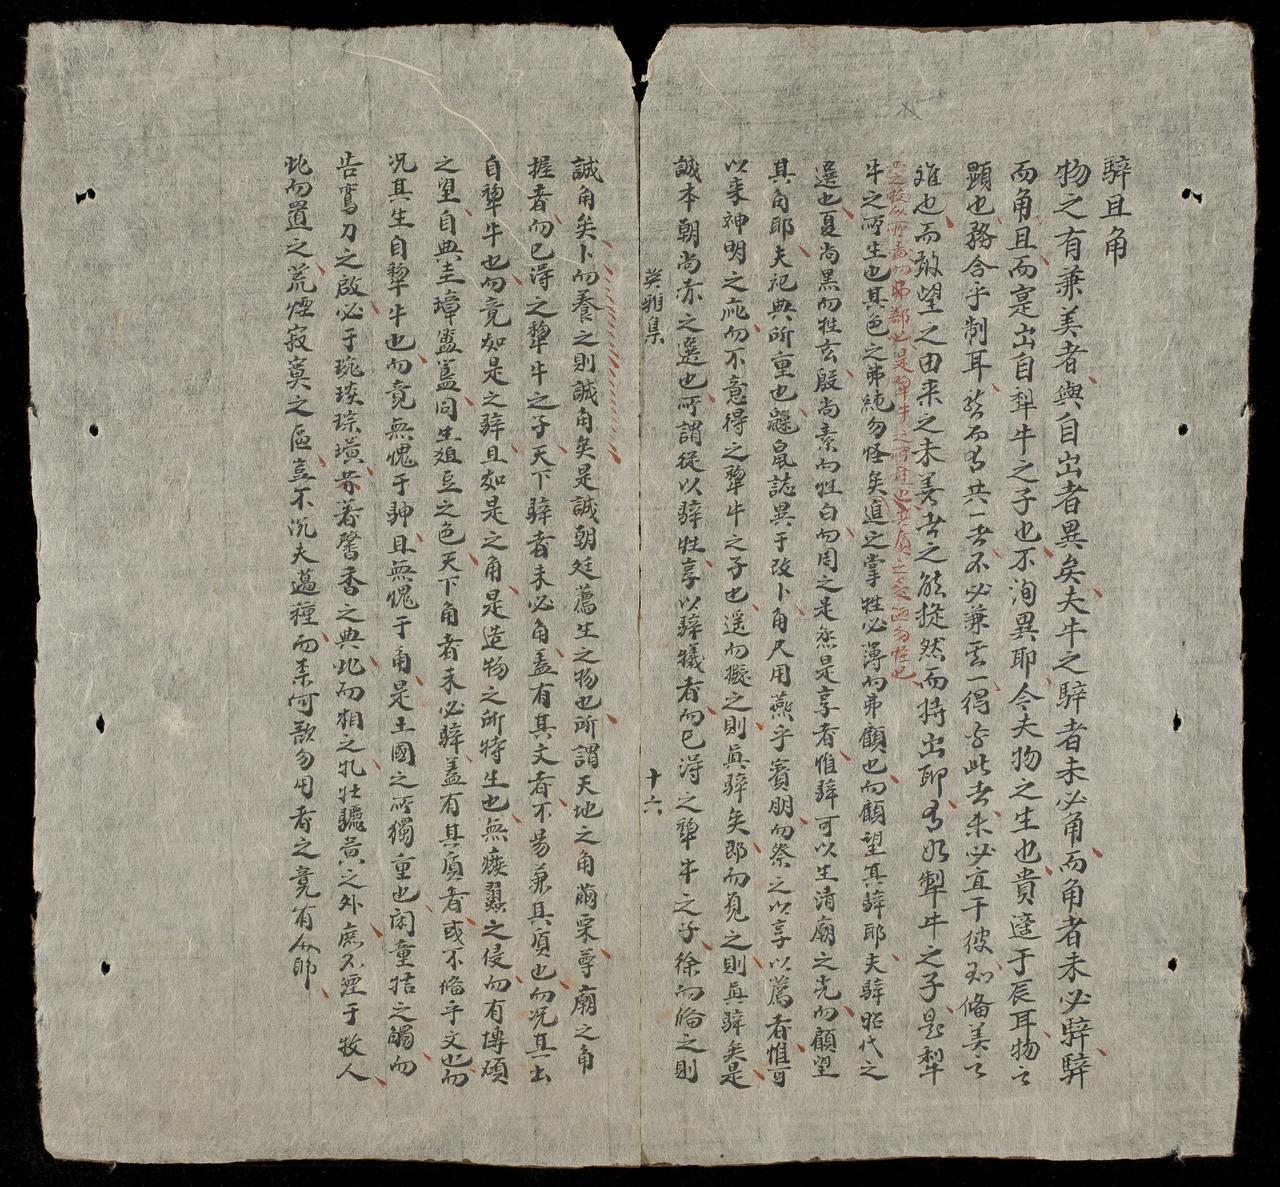 騂且角
物之有兼美者與自出者異矣夫牛之騂者未必角而角者未必騂騂
而角且而寔出自犁牛之子也不洵異耶今夫物之生也貴適于辰耳物之
顯也務合乎制耳然而有共一者不必兼云一得于此者未必宜于彼如備美之
难也而敢望之由来之未善者之能挺然而特出耶有如犁牛之子是犁
牛之所生也其色之弗純勿怪矣迨之掌牲必薄而弗顧也而顧望其騂耶夫騂昭代之
選也夏尚黑而牲玄殷尚素而牲白而周之是烝是享者惟騂可以生清廟之光而顧望
其角耶夫祀典所重也鼷鼠誌異于改卜角尺用燕乎賓朋而祭之以享以薦者惟可
以来神明之歆而不意得之犁牛之子也遥而擬之則真騂矣即而覓之則真騂矣是
誠本朝尚赤之選也所謂從以騂牲享以騂犧者而已淂之犁牛之子徐而俻之則
英雅集
十六
誠角矣卜而養之則誠角矣是誠朝廷薦生之物也所謂天地之角繭栗尊廟之角
握者而已淂之犁牛之子天下騂者未必角盖有其文者不易兼其質也而况其出
自犁牛也而竟如是之騂且如是之角是造物之所特生也無瘯蠡之侵而有博碩
之望自典圭璋璧盖同生爼豆之色天下角者未必騂盖有其質者或不俻乎文也而
况其生自犁牛也而竟無愧于騂且無愧于角是王國之所獨重也閑童牿之觸而
告鸞刀之啟必于琬琰琮璜共著馨香之典此而相之牝牡驪黄之外庶不湮于牧人
此而置之荒煙寂寞之區豈不沉夫菑種而柰何歌勿用者之竟有人耶